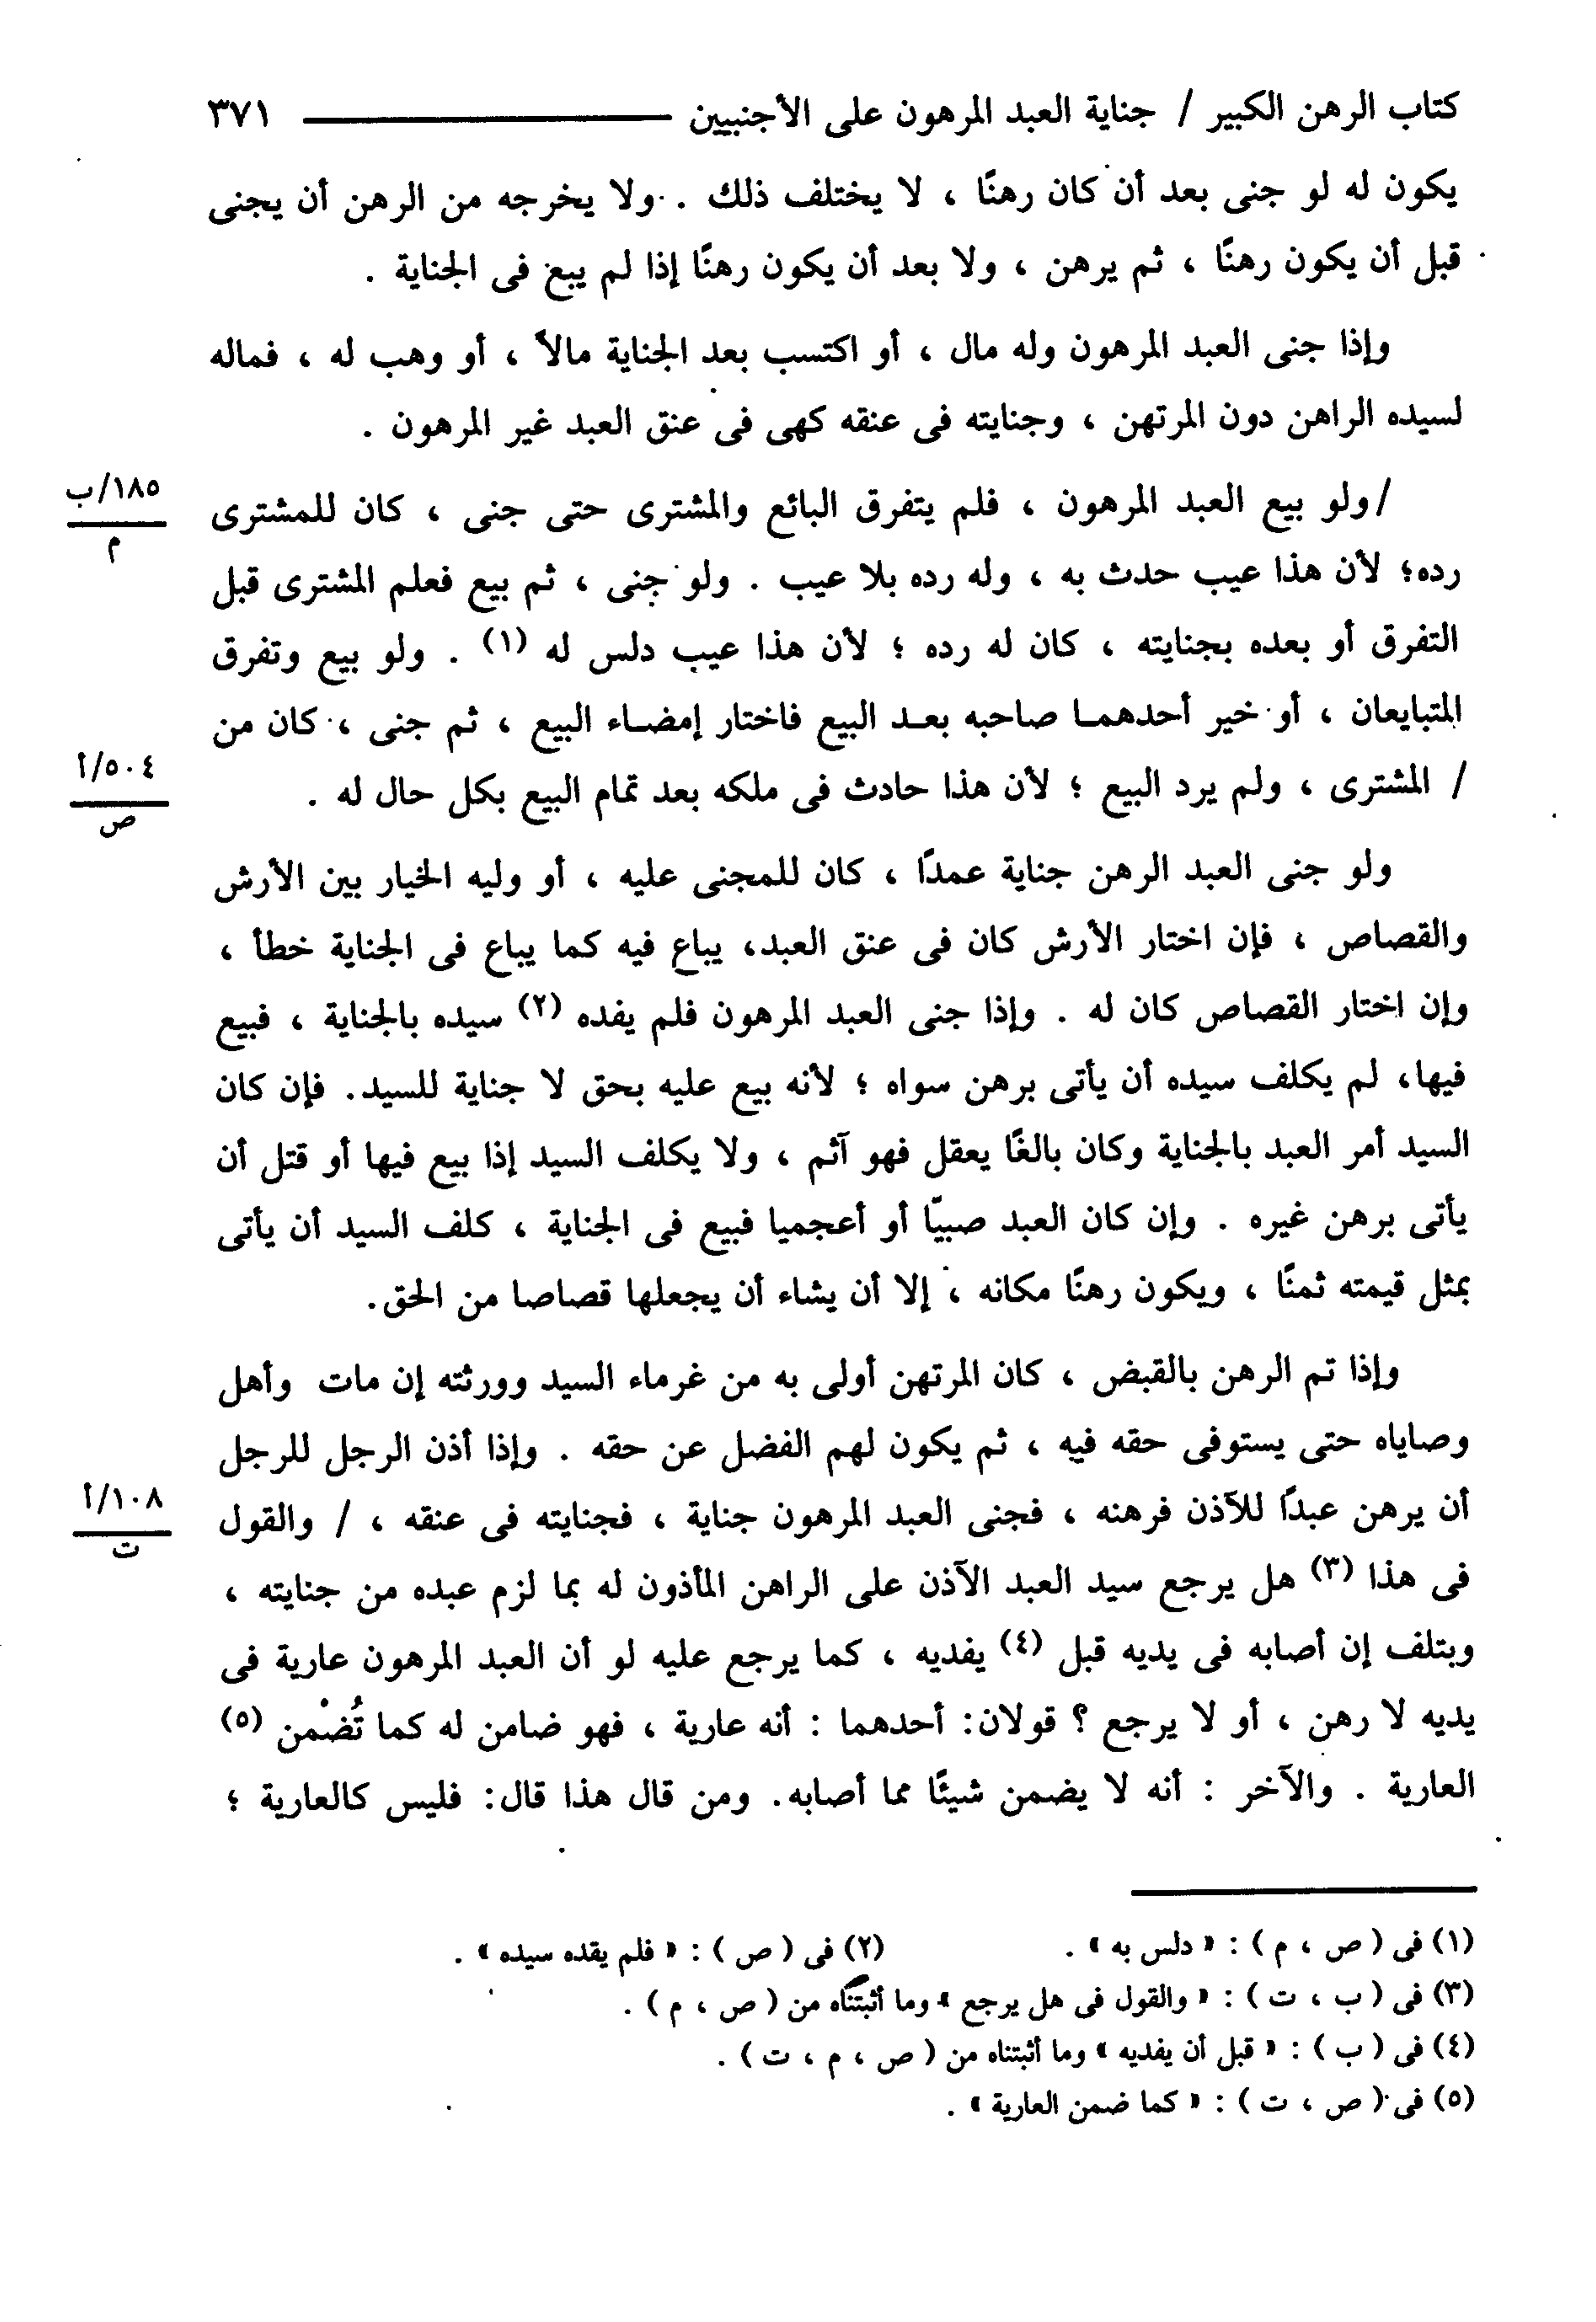 كتاب الرهن الكبير / جناية العبد المرهون على الأجنبيين ٣٧١
يكون له لو جنى بعد أن كان رهنًا ، لا يختلف ذلك . ولا يخرجه من الرهن أن يجنى
قبل أن يكون رهنًا ، ثم يرهن ، ولا بعد أن يكون رهنًا إذا لم يبع فى الجناية .
وإذا جنى العبد المرهون وله مال ، أو اكتسب بعد الجناية مالاً ، أو وهب له ، فماله
لسيده الراهن دون المرتهن ، وجنايته فى عنقه كهى فى عنق العبد غير المرهون .
/ولو بيع العبد المرهون ، فلم يتفرق البائع والمشترى حتى جنى ، كان للمشترى
١٨٥/ب
م
رده؛ لأن هذا عيب حدث به ، وله رده بلا عيب . ولو جنى ، ثم بيع فعلم المشترى قبل
التفرق أو بعده بجنايته ، كان له رده ؛ لأن هذا عيب دلس له (١) . ولو بيع وتفرق
المتبايعان ، أو خير أحدهما صاحبه بعد البيع فاختار إمضاء البيع ، ثم جنى ، كان من
/ المشترى ، ولم يرد البيع ؛ لأن هذا حادث فى ملكه بعد تمام البيع بكل حال له .
٥٠٤/أ
ص
ولو جنى العبد الرهن جناية عمدًا ، كان للمجنى عليه ، أو وليه الخيار بين الأرش
والقصاص ، فإن اختار الأرش كان فى عنق العبد، يباع فيه كما يباع فى الجناية خطأ ،
وإن اختار القصاص كان له . وإذا جنى العبد المرهون فلم يفده (٢) سيده بالجناية ، فبيع
فيها، لم يكلف سيده أن يأتى برهن سواه ؛ لأنه بيع عليه بحق لا جناية للسيد. فإن كان
السيد أمر العبد بالجناية وكان بالغًا يعقل فهو آثم ، ولا يكلف السيد إذا بيع فيها أو قتل أن
يأتى برهن غيره . وإن كان العبد صبيّا أو أعجميا فبيع فى الجناية ، كلف السيد أن يأتى
بمثل قيمته ثمنًا ، ويكون رهنًا مكانه ، إلا أن يشاء أن يجعلها قصاصا من الحق.
وإذا تم الرهن بالقبض ، كان المرتهن أولى به من غرماء السيد وورثته إن مات وأهل
وصاياه حتى يستوفى حقه فيه ، ثم يكون لهم الفضل عن حقه . وإذا أذن الرجل للرجل
أن يرهن عبدًا للآذن فرهنه ، فجنى العبد المرهون جناية ، فجنايته فى عنقه ، / والقول
١٠٨/أ
ت
فى هذا (٣) هل يرجع سيد العبد الآذن على الراهن المأذون له بما لزم عبده من جنايته ،
وبتلف إن أصابه فى يديه قبل (٤) يفديه ، كما يرجع عليه لو أن العبد المرهون عارية فى
يديه لا رهن ، أو لا يرجع ؟ قولان: أحدهما : أنه عارية ، فهو ضامن له كما تُضْمن (٥)
العارية . والآخر : أنه لا يضمن شيئًا مما أصابه. ومن قال هذا قال: فليس كالعارية ؛
(١) فى ( ص ، م ) : « دلس به » . (٢) فى ( ص ) : « فلم يقده سيده » .
(٣) فى ( ب ، ت ) : « والقول فى هل يرجع » وما أثبتناه من ( ص ، م ) .
(٤) فى ( ب ) : « قبل أن يفديه » وما أثبتناه من ( ص ، م ، ت ) .
(٥) فى ( ص ، ت ) : « كما ضمن العارية » .